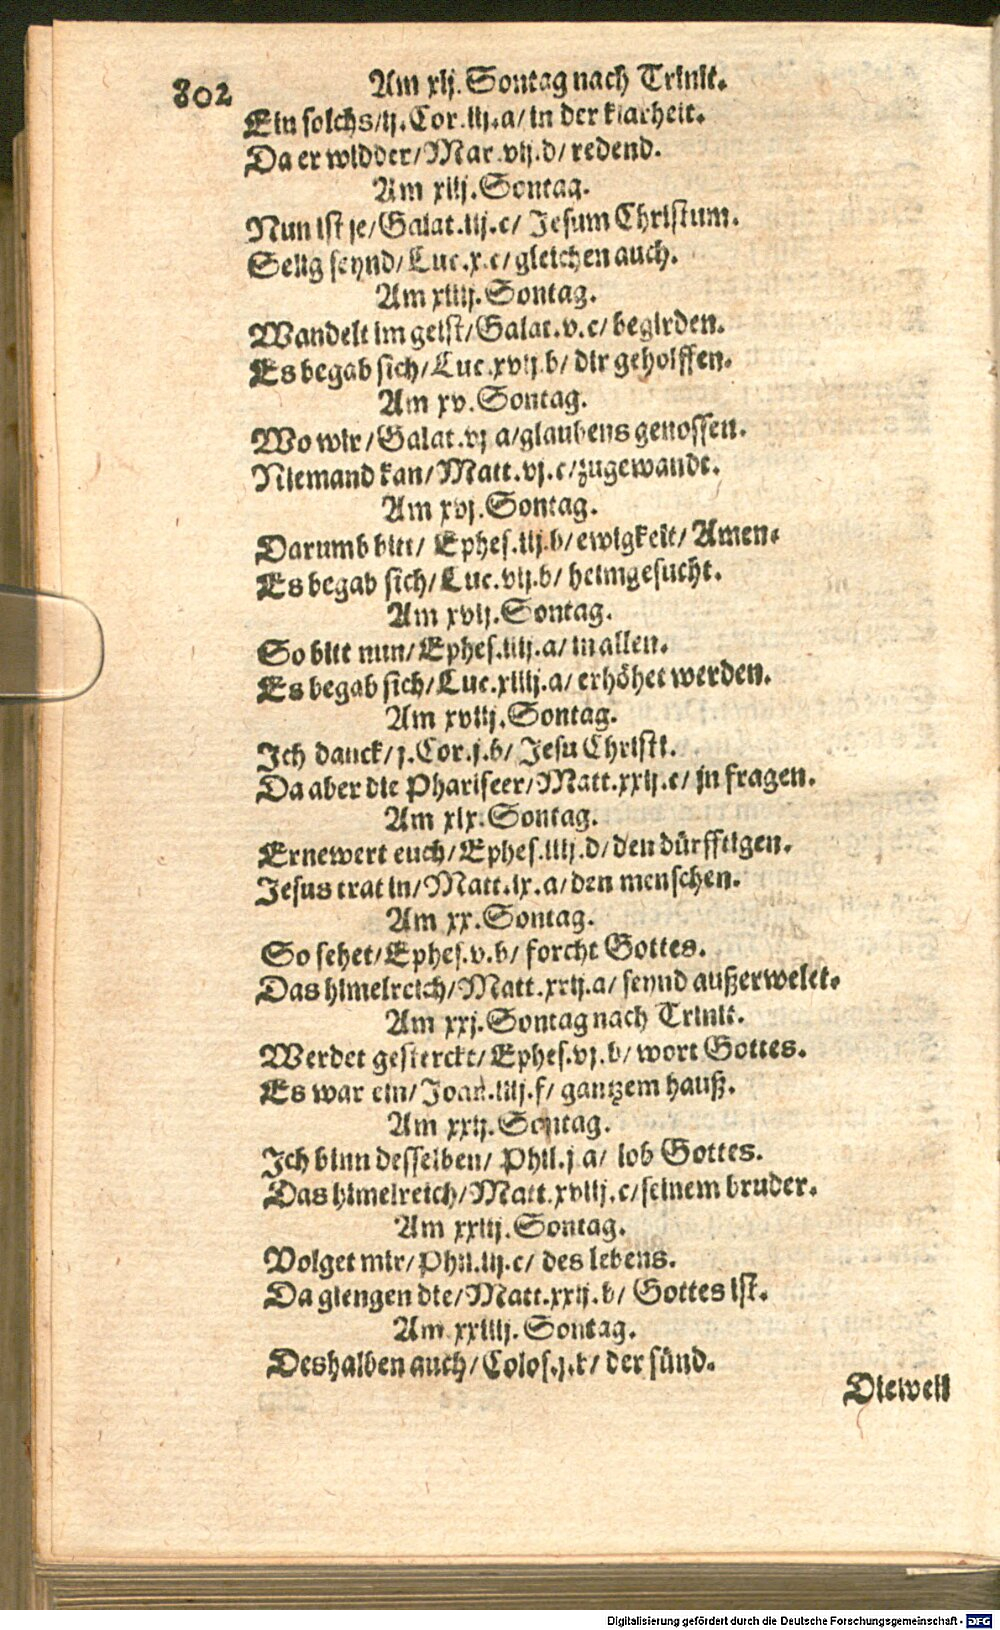 802
Am xij. Sontag nach Trinit.
Ein solchs/ij.Cor.iij.a/in der klarheit.
Da er widder/Mar.vij.d/redend.
Am xiij. Sontag.
Nun ist je/Galat.iij.c/ Jesum Christum.
Selig seynd/Luc.x.c/gleichen auch.
Am xiiij. Sontag.
Wandelt im geist/Galat.v.c/ begirden.
Es begab sich/Luc.xvij.b/ dir geholffen.
Am xv. Sontag.
Wo wir/Galat.vj a/glaubens genossen.
Niemand kan/Matt.vj.c/zugewandt.
Am xvj. Sontag.
Darumb bitt/ Ephes.iij.b/ewigkeit/ Amen.
Es begab sich/Luc.vij.b/ heimgesucht.
Am xvij. Sontag.
So bitt nun/Ephes.iiij.a/ in allen.
Es begab sich/Luc.xiiij.a/erhöhet werden.
Am xviij. Sontag.
Ich danck/j.Cor.j.b/ Jesu Christi.
Da aber die Phariseer/Matt.xxij.c/ jn fragen.
Am xix. Sontag.
Ernewert euch/Ephes.iiij.d/den dürfftigen.
Jesus trat in/Matt.ix.a/den menschen.
Am xx. Sontag.
So sehet/Ephes.v.b/ forcht Gottes.
Das himelreich/Matt.xxij.a/ seynd außerwelet.
Am xxj. Sontag nach Trinit.
Werdet gesterckt/Ephes.vj.b/wort Gottes.
Es war ein/Joan.iiij.f/ gantzem hauß.
Am xxij. Sontag.
Ich binn desselben/ Phil.j a/ lob Gottes.
Das himelreich/Matt.xviij.c/seinem bruder.
Am xxiij. Sontag.
Volget mir/Phil.iij.c/ des lebens.
Da giengen die/Matt.xxij.b/ Gottes ist.
Am xxiiij. Sontag.
Deshalben auch/Colos.j.b/ der sünd.
Dieweil
Digitalisierung gefördert durch die Deutsche Forschungsgemeinschaft - DFG